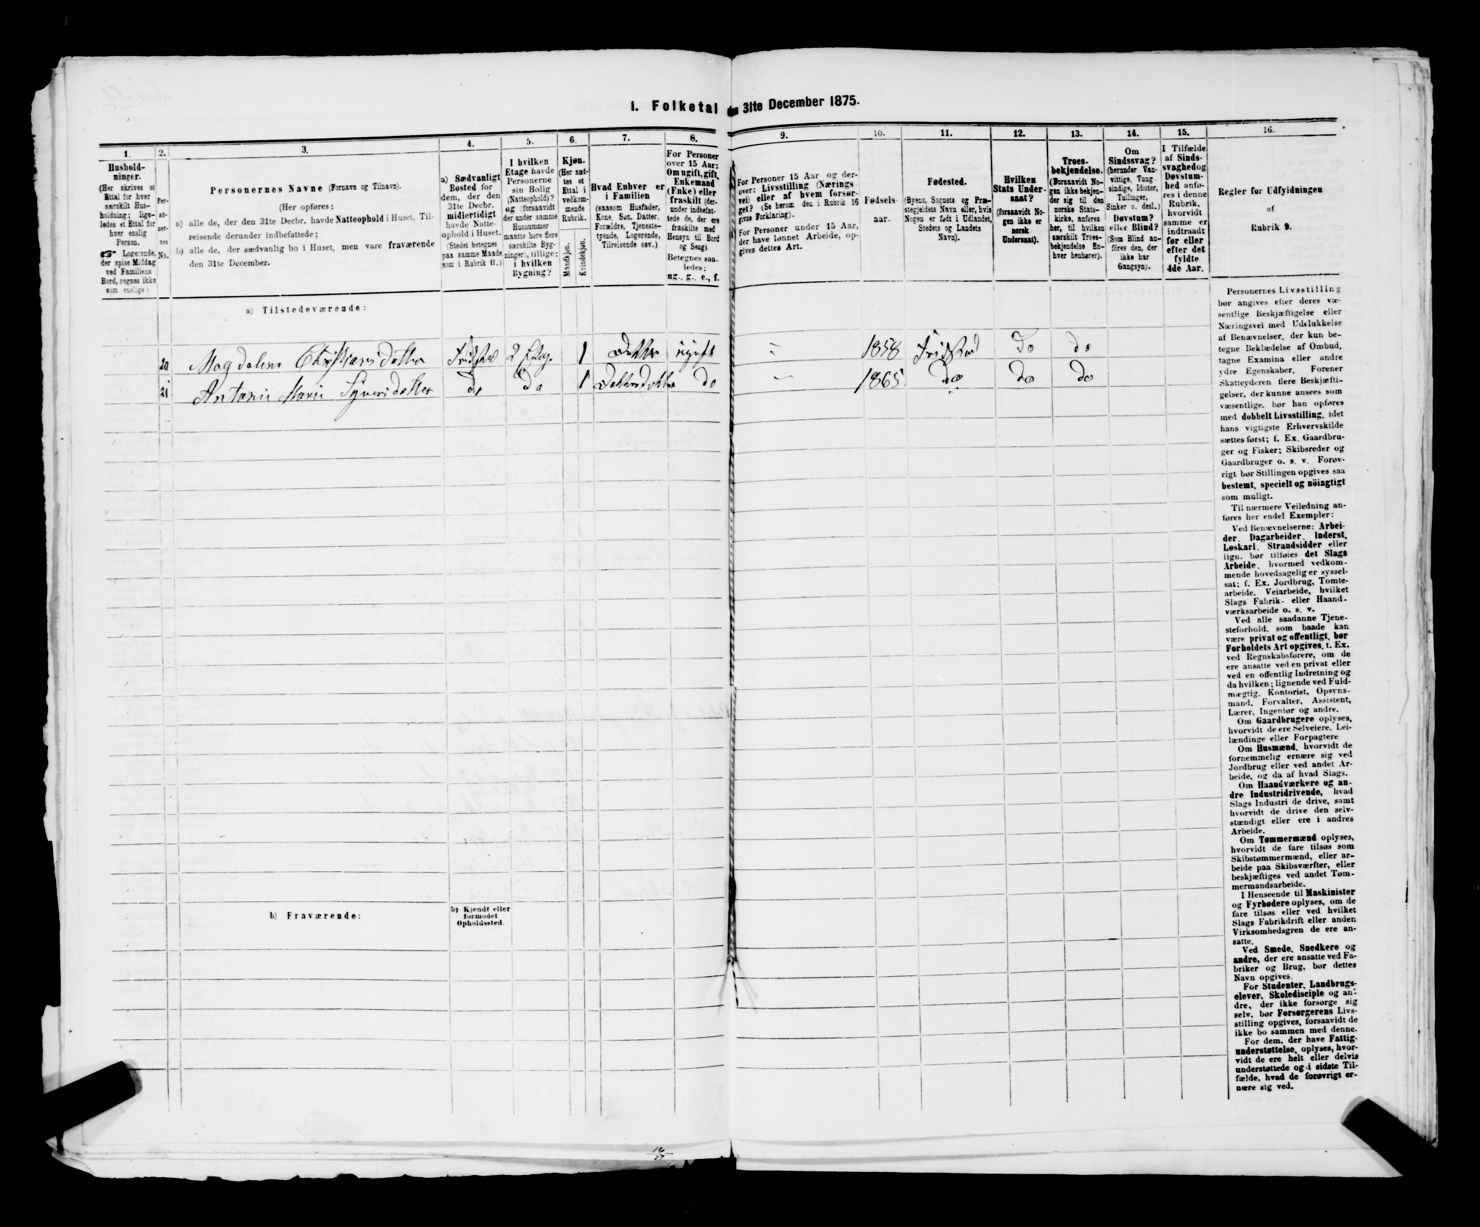 I. Folketal den 31te December 1875.
1.
Hushold-
ninger.
(Her skrives et
Ettal for hver
særskilt Hus-
holdning; lige-
ledes et Ettal for
hver enslig
Person.
☛ Logerende,
der spise Middag
ved Familiens
Bord, regnes ikke
som enslige.)
2.
Per-
so-
ner-
nes
No.
3.
Personernes Navne (Fornavn og Tilnavn).
(Her opføres:
a) alle de, der den 31te Decbr. havde Natteophold i Huset, Til-
reisende derunder indbefattede;
b) alle de, der sædvanlig bo i Huset, men vare fraværende
den 31te December.
4.
a) Sædvanligt
Bosted for
dem, der den
31te Decbr.
midlertidigt
havde Natte-
ophold i Huset.
(Stedet betegnes
paa samme Maade
som i Rubrik 11.)
5.
I hvilken
Etage havde
Personerne
sin Bolig
(Natteophold)?
og (forsaavidt
der under samme
Husnummer
maatte høre flere
særskilte Byg-
ninger), tillige:
i hvilken
Bygning?
6.
Kjøn.
(Her sæt-
tes et
Ettal i
vedkom-
mende
Rubrik.
Mandkjøn.
Kvindekjøn.
7.
Hvad Enhver er
i Familien
(saasom Husfader,
Kone, Søn, Datter,
Forældre, Tjeneste-
tyende, Logerende,
Tilreisende osv.)
8.
For Personer
over 15 Aar:
Om ugift, gift,
Enkemand
(Enke) eller
fraskilt (der-
under indbefat-
tede de, der ere
fraskilte med
Hensyn til Bord
og Seng).
Betegnes saa-
ledes:
ug., g., e., f.
9.
For Personer 15 Aar og der-
over: Livsstilling (Nærings-
vei) eller af hvem forsør-
get? (Se herom den i Rubrik 16
givne Forklaring).
For Personer under 15 Aar,
der have lønnet Arbeide, op-
gives dettes Art.
10.
Fødsels-
aar.
11.
Fødested.
(Byens, Sognets og Præ-
stegjeldets Navn eller, hvis
Nogen er født i Udlandet,
Stedets og Landets
Navn).
12.
Hvilken
Stats Under-
saat?
(forsaavidt No-
gen ikke er
norsk
Undersaat).
13.
Troes-
bekjendelse.
(Forsaavidt No-
gen ikke bekjen-
der sig til den
norske Stats-
kirke, anføres
her, til hvilken
særskilt Troes-
bekjendelse En-
hver henhører).
14.
Om
Sindssvag?
(herunder Van-
vittige, Tung-
sindige, Idioter,
Tullinger,
Sinker o. desl.)
Døvstum?
eller Blind?
(Som Blind an-
føres den, der
ikke har
Gangsyn).
15.
I Tilfælde
af Sinds-
svaghed og
Døvstum-
hed anfø-
res i denne
Rubrik,
hvorvidt
samme er
indtraadt
før eller
efter det
fyldte
4de Aar.
16.
Regler for Udfyldningen
af
Rubrik 9.
a) Tilstedeværende:
20 Magdalene Christiansdatter Fridstad 2 Etage 1 Datter ugift 1858 Fridstad do do
21 Antonie Marie Syversdatter do do 1 Datterdatter do 1865 do do do
b) Fraværende:
b) Kjendt eller
formodet
Opholdssted.
Personernes Livsstilling
bør angives efter deres væ-
sentlige Beskjæftigelse eller
Næringsvei med Udelukkelse
af Benævnelser, der kun be-
tegne Beklædelse af Ombud,
tagne Examina eller andre
ydre Egenskaber. Forener
Skatteyderen flere Beskjæfti-
gelser, der kunne ansees som
væsentlige, bør han opføres
med dobbelt Livsstilling, idet
hans vigtigste Erhvervskilde
sættes først; f. Ex. Gaardbru-
ger og Fisker; Skibsreder og
Gaardbruger o. s. v. Forøv-
rigt bør Stillingen opgives saa
bestemt, specielt og nøiagtigt
som muligt.
Til nærmere Veiledning an-
føres her endel Exempler:
Ved Benævnelserne: Arbei-
der, Dagarbeider, Inderst,
Løskarl, Strandsidder eller
lign. bør tilføies det Slags
Arbeide, hvormed vedkom-
mende hovedsagelig er syssel-
sat; f. Ex. Jordbrug, Tomte-
arbeide, Veiarbeide, hvilket
Slags Fabrik- eller Haand-
værksarbeide o. s. v.
Ved alle saadanne Tjene-
steforhold, som baade kan
være privat og offentligt, bør
Forholdets Art opgives, t. Ex.
ved Regnskabsførere, om de
ere ansatte ved en privat eller
ved en offentlig Indretning og
da hvilken; lignende ved Fuld-
mægtig, Kontorist, Opsyns-
mand, Forvalter, Assistent,
Lærer, Ingeniør og andre.
Om Gaardbrugere oplyses,
hvorvidt de ere Selveiere, Lei-
lændinge eller Forpagtere
Om Husmænd, hvorvidt de
fornemmelig ernære sig ved
Jordbrug eller ved andet Ar-
beide, og da af hvad Slags.
Om Haandværkere og an-
dre Industridrivende, hvad
Slags Industri de drive, samt
hvorvidt de drive den selv-
stændigt eller ere i andres
Arbeide.
Om Tømmermænd oplyses,
hvorvidt de fare tilsøs som
Skibstømmermænd, eller ar-
beide paa Skibsværfter, eller
beskjæftiges ved andet Tøm-
mermandsarbeide.
I Henseende til Maskinister
og Fyrbødere oplyses, om de
fare tilsøs eller ved hvilket
Slags Fabrikdrift eller anden
Virksomhedsgren de ere an-
satte.
Ved Smede, Snedkere og
andre, der ere ansatte ved Fa-
briker og Brug, bør dettes
Navn opgives.
For Studenter, Landbrugs-
elever, Skoledisciple og an-
dre, der ikke forsørge sig
selv, bør Forsørgerens Livs-
stilling opgives, forsaavidt de
ikke bo sammen med denne.
For dem, der have Fattig-
understøttelse, oplyses, hvor-
vidt de ere helt eller delvis
understøttede og i sidste Til-
fælde, hvad de forøvrigt er-
nære sig ved.